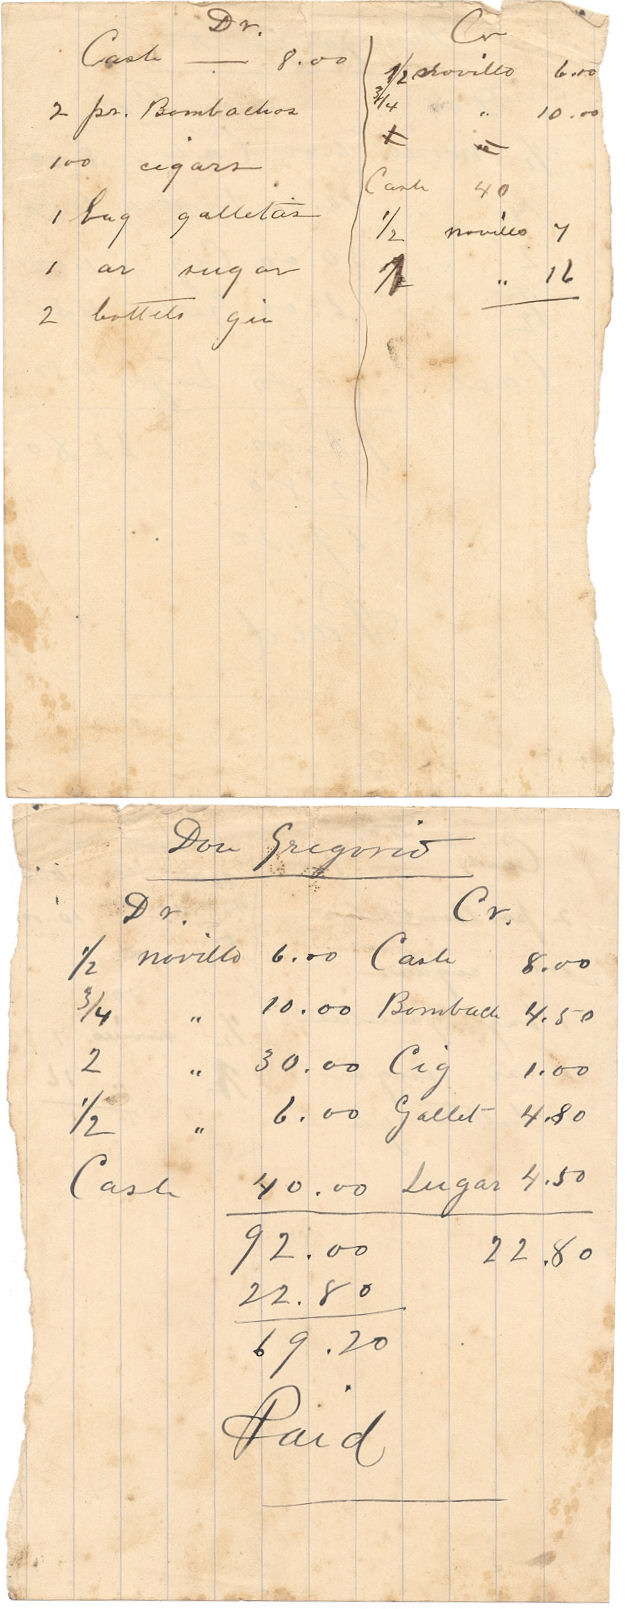 Dr.
Cash — 8.00
2 pr. Bombachos
100 cigars
1 bag galletas
1 ar sugar
2 bottels gin
Cr
1/2 novillo 6.00
3/4 " 10.00
Cash 40
1/2 novillo 7
" 16
Don Gregorio
Dr. Cr.
1/2 novillo 6.00 Cash 8.00
3/4 " 10.00 Bombach 4.50
2 " 30.00 Cig 1.00
1/2 " 6.00 Gallet 4.80
Cash 40.00 Sugar 4.50
92.00 22.80
22.80
69.20
Paid